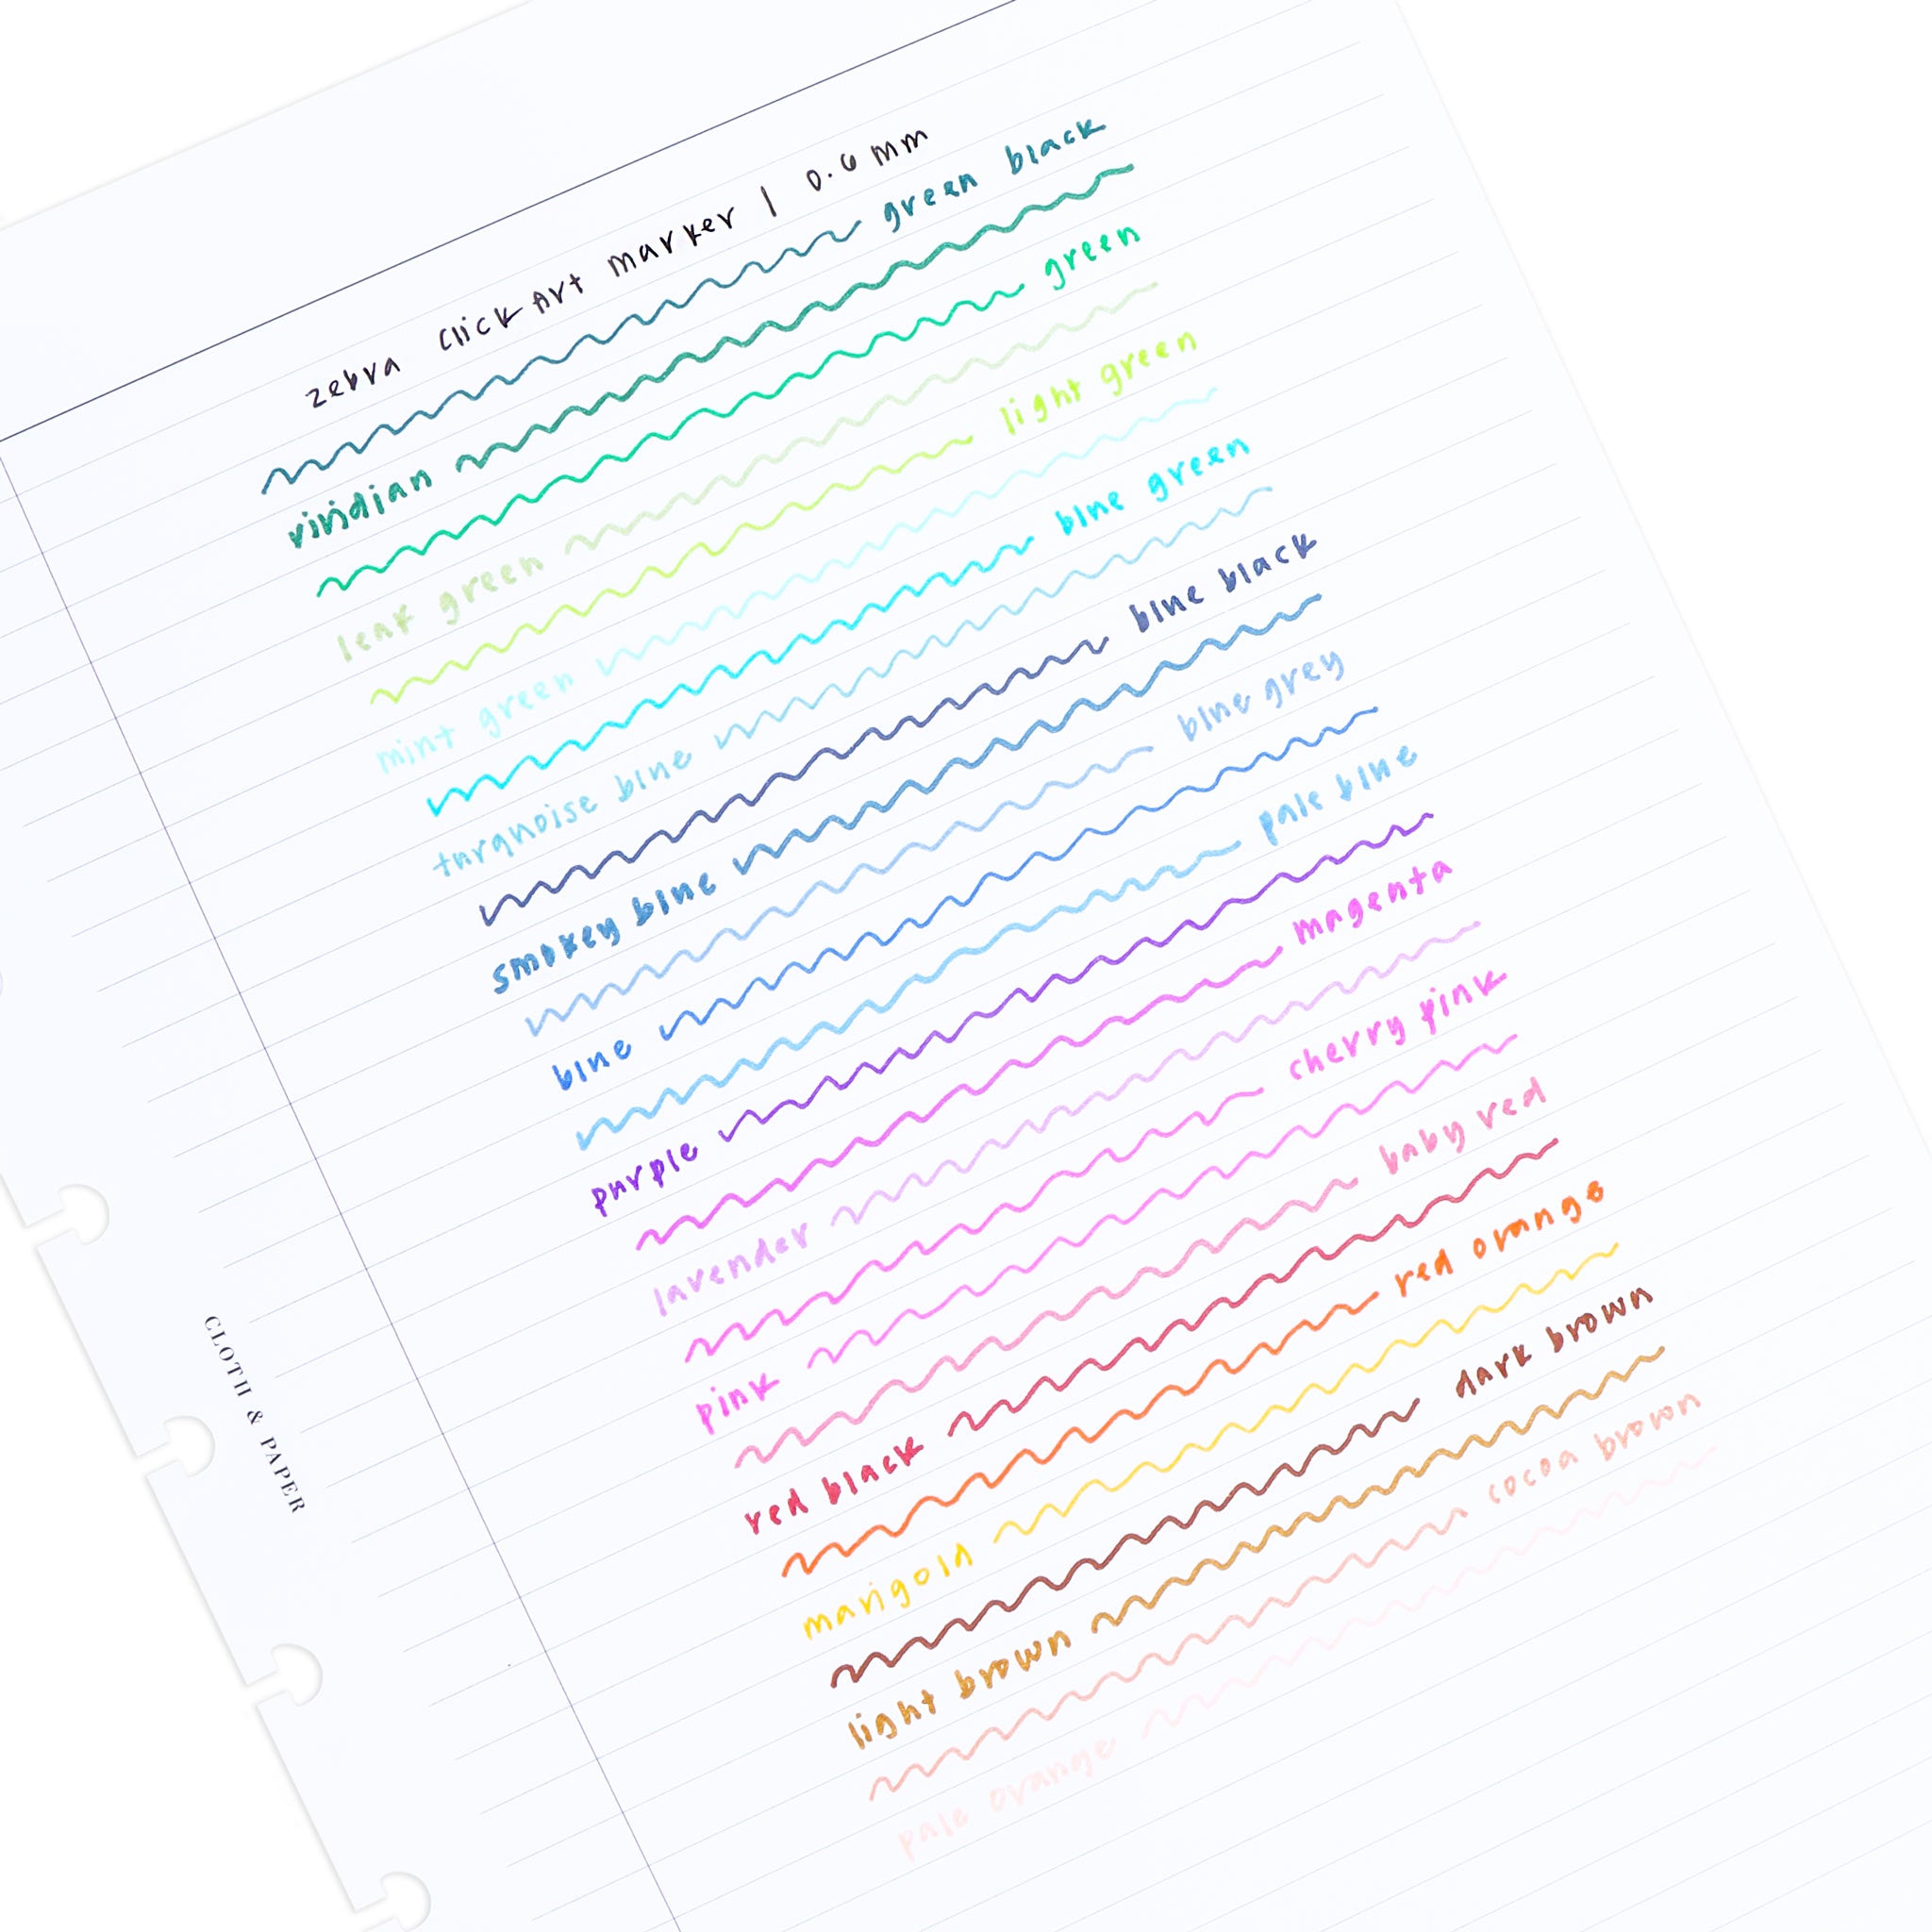 zebra click Art marker | 0.6 mm
green black
viridian
green
leaf green
light green
mint green
blue green
turquoise blue
blue black
smokey blue
blue grey
blue
pale blue
purple
magenta
lavender
cherry pink
pink
baby red
red black
red orange
marigold
dark brown
light brown
cocoa brown
pale orange
CLOTH & PAPER